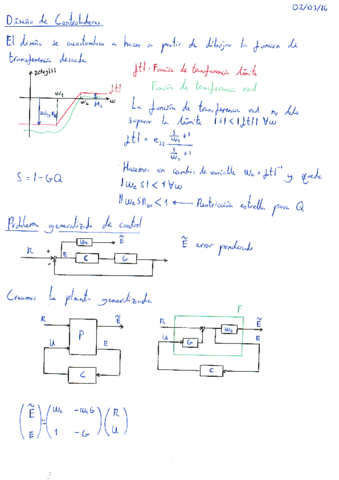 02/03/16
Diseño de Controladores
El diseño se acostumbra a hacer a partir de dibujar la funcion de
transferencia deseada
20log|S|
ftl
ftl: Función de transferencia límite
Función de transferencia real
ω1
ω2
ω
Ms
La función de transferencia real no debe
superar la límite |S|<|ftl| ∀ω
ftl = ess
Hacemos un cambio de variable ωe = ftl⁻¹ y queda
|ωe S|<1 ∀ω
S = 1-GQ
||ωe S||∞ < 1 ← Restricción estrella para Q
Problema generalizado de control
R + - E ωe Ẽ C G
Ẽ error ponderado
Creamos la planta generalizada
R P Ẽ U E C
P R ωe Ẽ U G E C
(Ẽ E) = (ωe -ωeG 1 -G) (R U)